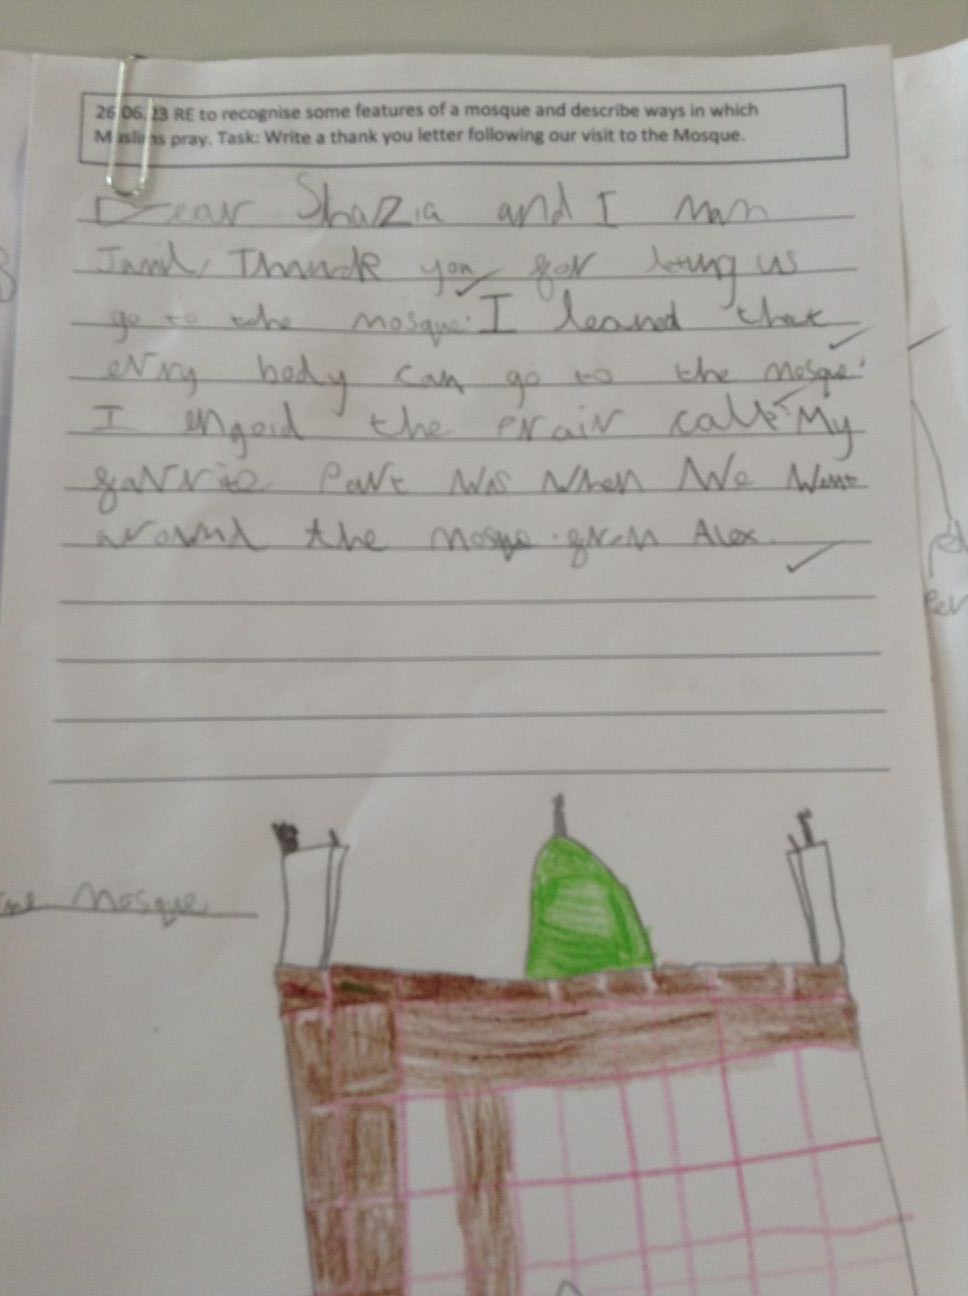 26.06.23 RE to recognise some features of a mosque and describe ways in which
Muslims pray. Task: Write a thank you letter following our visit to the Mosque.
Dear Shazia and I mam
Jamil, Thank you for leting us
go to the mosque. I leaned that
evry body can go to the mosque.
I engoid the prair call. My
favrite part was when we went
around the mosque. from Alex.
Mosque